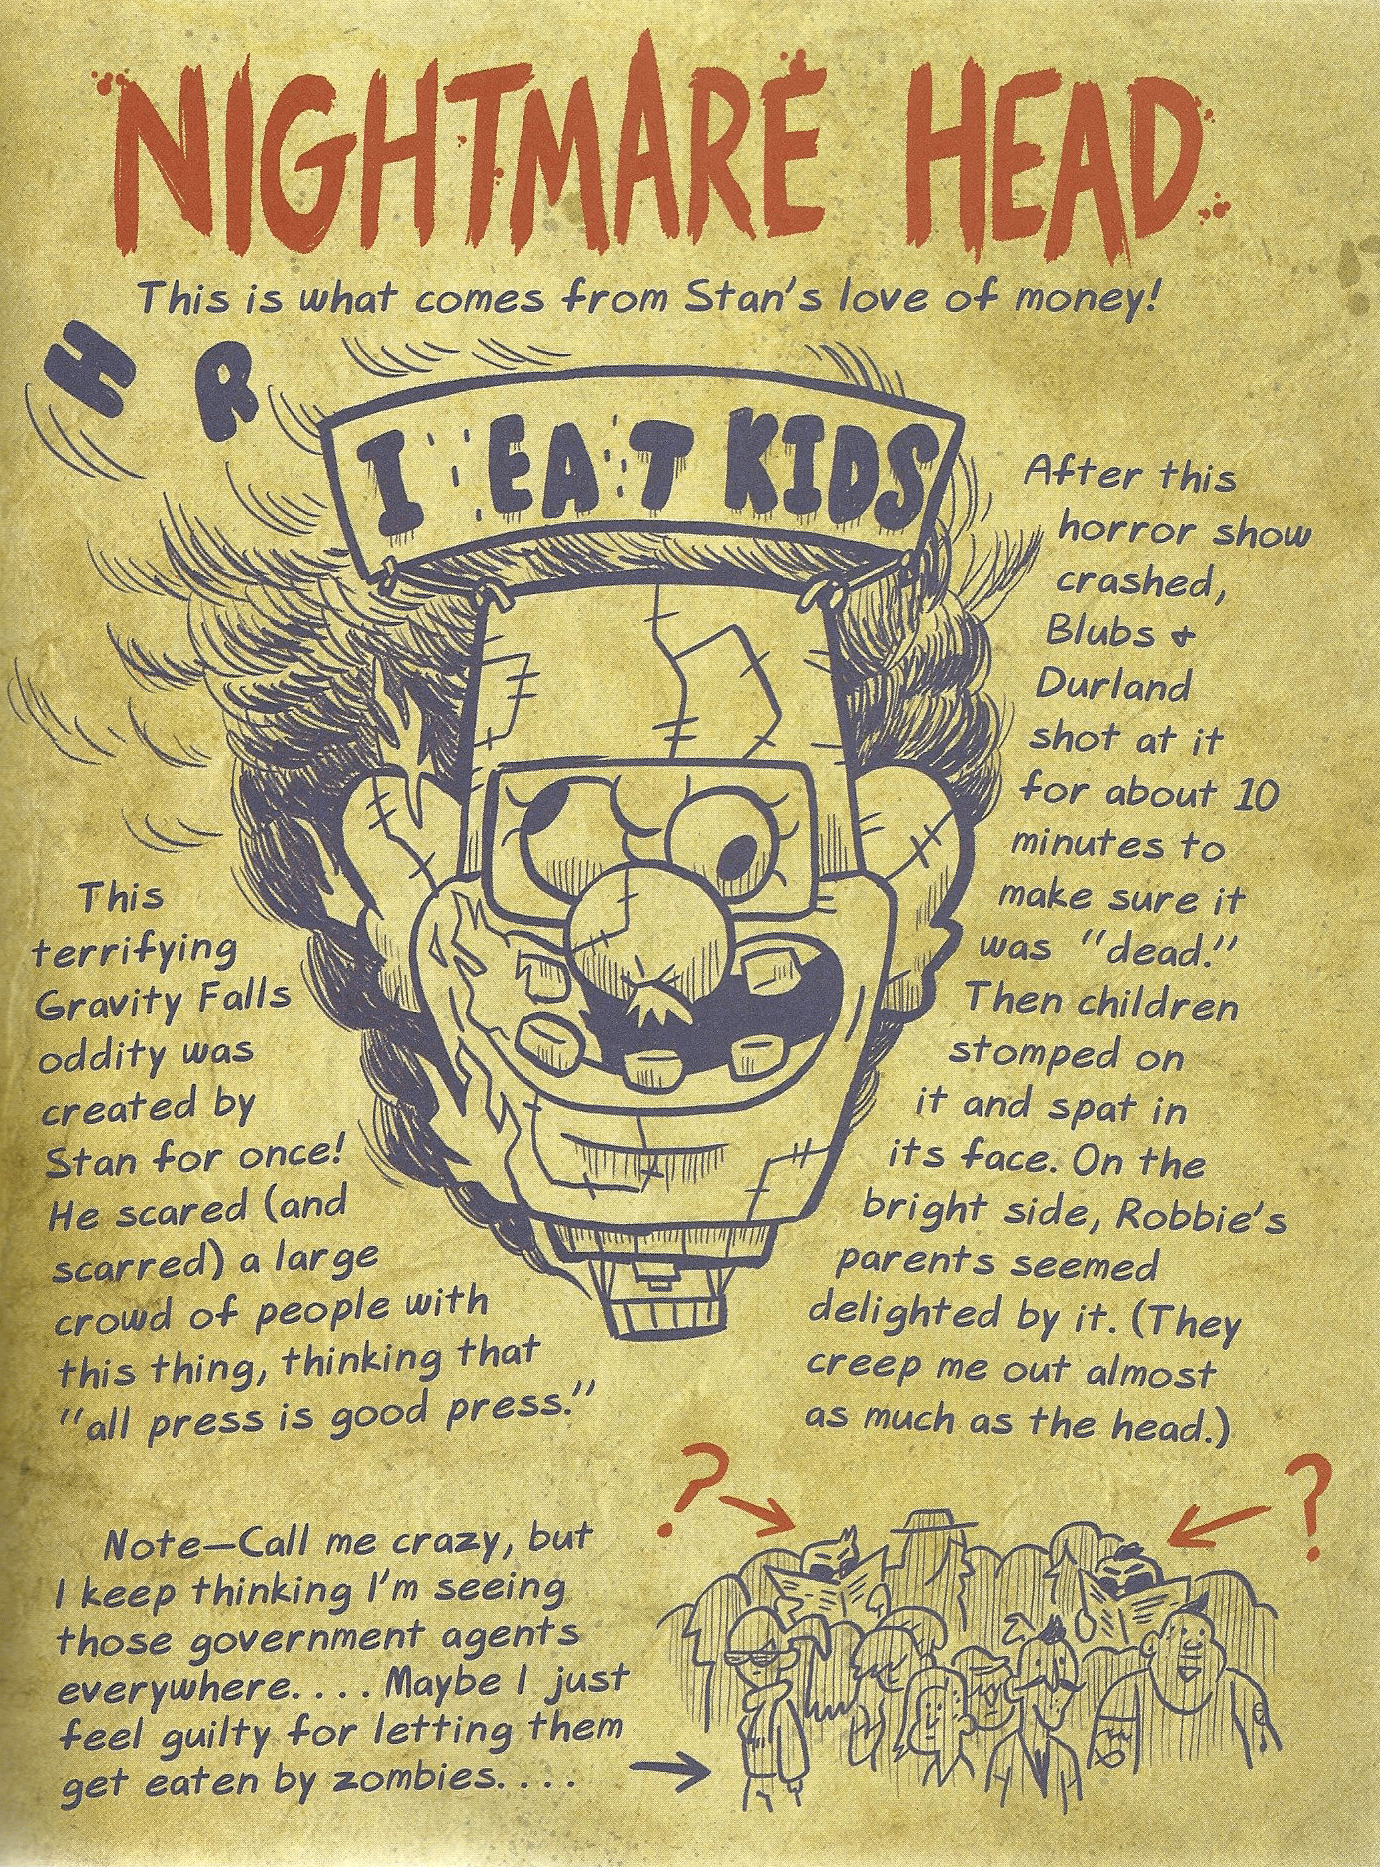 NIGHTMARE HEAD
This is what comes from Stan's love of money!
H R
I EAT KIDS
This
terrifying
Gravity Falls
oddity was
created by
Stan for once!
He scared (and
scarred) a large
crowd of people with
this thing, thinking that
"all press is good press."
After this
horror show
crashed,
Blubs &
Durland
shot at it
for about 10
minutes to
make sure it
was "dead."
Then children
stomped on
it and spat in
its face. On the
bright side, Robbie's
parents seemed
delighted by it. (They
creep me out almost
as much as the head.)
Note—Call me crazy, but
I keep thinking I'm seeing
those government agents
everywhere.... Maybe I just
feel guilty for letting them
get eaten by zombies....
? ?